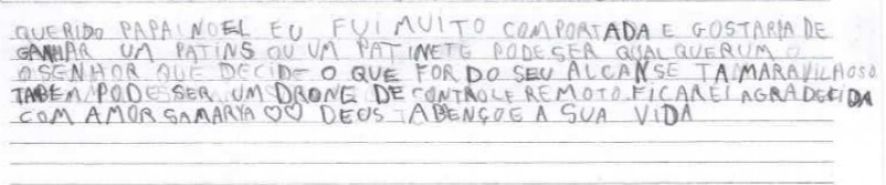 QUERIDO PAPAI NOEL EU FUI MUITO COMPORTADA E GOSTARIA DE
GANHAR UM PATINS OU UM PATINETE PODE SER QUALQUER UM O
O SENHOR QUE DECIDE O QUE FOR DO SEU ALCANSE TA MARAVILAOSO
TABEM PODE SER UM DRONE DE CONTROLE REMOTO FICAREI AGRADECIDA
COM AMOR SAMARYA ♡♡ DEUS TABENÇOE A SUA VIDA